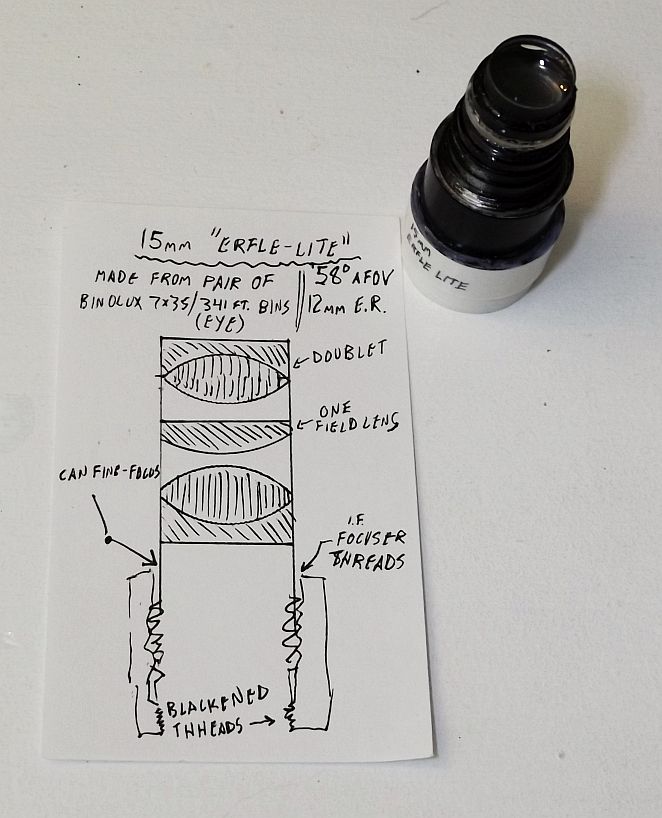 15mm "ERFLE-LITE"
MADE FROM PAIR OF
BINOLUX 7x35/341 FT. BINS
(EYE)
58° AFOV
12mm E.R.
DOUBLET
ONE
FIELD LENS
CAN FINE-FOCUS
I.F.
FOCUSER
THREADS
BLACKENED
THHEADS
15mm
ERFLE LITE